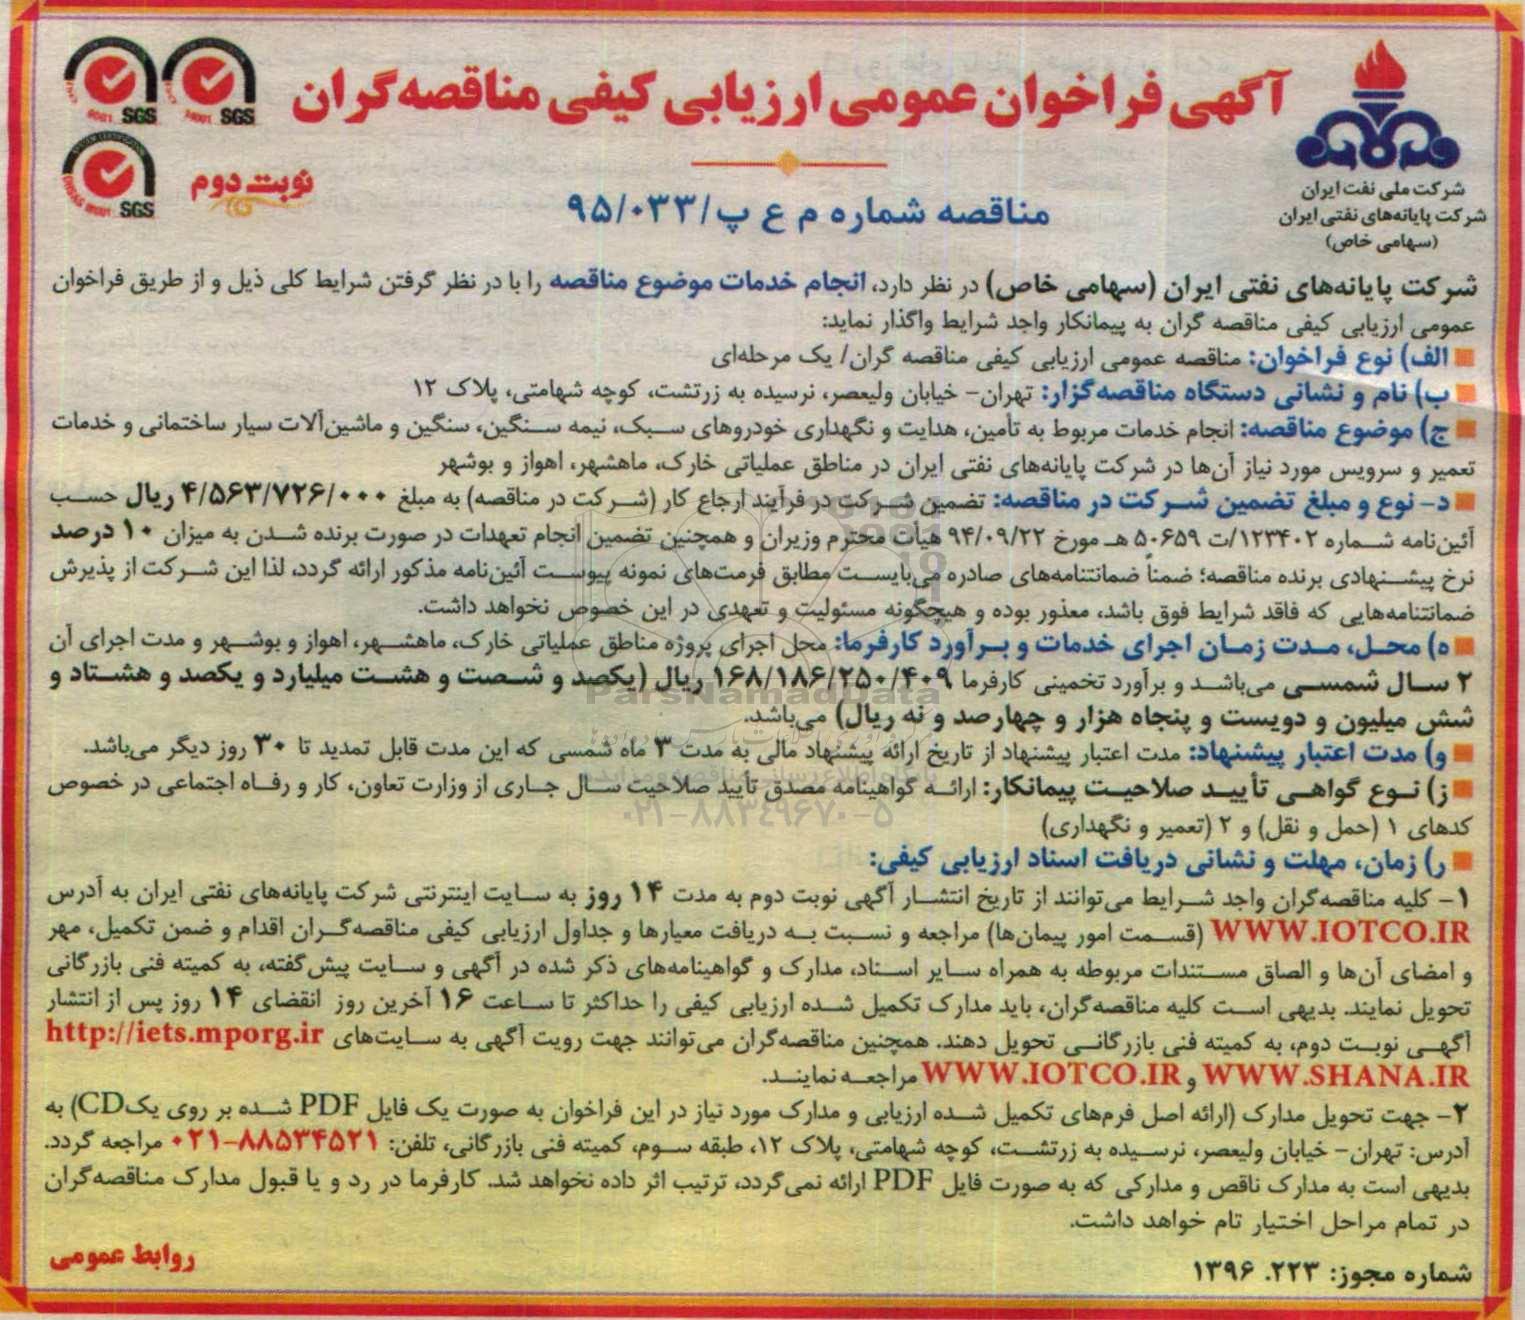 آگهی فراخوان عمومی ارزیابی کیفی مناقصه‌گران
SGS
SGS
SGS
نوبت دوم
مناقصه شماره م ع پ/۹۵/۰۳۳
شرکت ملی نفت ایران
شرکت پایانه‌های نفتی ایران
(سهامی خاص)
شرکت پایانه‌های نفتی ایران (سهامی خاص) در نظر دارد، انجام خدمات موضوع مناقصه را با در نظر گرفتن شرایط کلی ذیل و از طریق فراخوان
عمومی ارزیابی کیفی مناقصه گران به پیمانکار واجد شرایط واگذار نماید:
الف) نوع فراخوان: مناقصه عمومی ارزیابی کیفی مناقصه گران/ یک مرحله‌ای
ب) نام و نشانی دستگاه مناقصه‌گزار: تهران- خیابان ولیعصر، نرسیده به زرتشت، کوچه شهامتی، پلاک ۱۲
ج) موضوع مناقصه: انجام خدمات مربوط به تأمین، هدایت و نگهداری خودروهای سبک، نیمه سنگین، سنگین و ماشین‌آلات سیار ساختمانی و خدمات
تعمیر و سرویس مورد نیاز آن‌ها در شرکت پایانه‌های نفتی ایران در مناطق عملیاتی خارک، ماهشهر، اهواز و بوشهر
د- نوع و مبلغ تضمین شرکت در مناقصه: تضمین شرکت در فرآیند ارجاع کار (شرکت در مناقصه) به مبلغ ۴/۵۶۳/۷۲۶/۰۰۰ ریال حسب
آئین‌نامه شماره ۱۲۳۴۰۲/ت ۵۰۶۵۹ هـ مورخ ۹۴/۰۹/۲۲ هیأت محترم وزیران و همچنین تضمین انجام تعهدات در صورت برنده شدن به میزان ۱۰ درصد
نرخ پیشنهادی برنده مناقصه؛ ضمناً ضمانتنامه‌های صادره می‌بایست مطابق فرمت‌های نمونه پیوست آئین‌نامه مذکور ارائه گردد، لذا این شرکت از پذیرش
ضمانتنامه‌هایی که فاقد شرایط فوق باشد، معذور بوده و هیچگونه مسئولیت و تعهدی در این خصوص نخواهد داشت.
ه) محل، مدت زمان اجرای خدمات و برآورد کارفرما: محل اجرای پروژه مناطق عملیاتی خارک، ماهشهر، اهواز و بوشهر و مدت اجرای آن
۲ سال شمسی می‌باشد و برآورد تخمینی کارفرما ۱۶۸/۱۸۶/۲۵۰/۴۰۹ ریال (یکصد و شصت و هشت میلیارد و یکصد و هشتاد و
شش میلیون و دویست و پنجاه هزار و چهارصد و نه ریال) می‌باشد.
و) مدت اعتبار پیشنهاد: مدت اعتبار پیشنهاد از تاریخ ارائه پیشنهاد مالی به مدت ۳ ماه شمسی که این مدت قابل تمدید تا ۳۰ روز دیگر می‌باشد.
ز) نوع گواهی تأیید صلاحیت پیمانکار: ارائه گواهینامه مصدق تأیید صلاحیت سال جاری از وزارت تعاون، کار و رفاه اجتماعی در خصوص
کدهای ۱ (حمل و نقل) و ۲ (تعمیر و نگهداری)
ر) زمان، مهلت و نشانی دریافت اسناد ارزیابی کیفی:
۱- کلیه مناقصه‌گران واجد شرایط می‌توانند از تاریخ انتشار آگهی نوبت دوم به مدت ۱۴ روز به سایت اینترنتی شرکت پایانه‌های نفتی ایران به آدرس
WWW.IOTCO.IR (قسمت امور پیمان‌ها) مراجعه و نسبت به دریافت معیارها و جداول ارزیابی کیفی مناقصه‌گران اقدام و ضمن تکمیل، مهر
و امضای آن‌ها و الصاق مستندات مربوطه به همراه سایر اسناد، مدارک و گواهینامه‌های ذکر شده در آگهی و سایت پیش‌گفته، به کمیته فنی بازرگانی
تحویل نمایند. بدیهی است کلیه مناقصه‌گران، باید مدارک تکمیل شده ارزیابی کیفی را حداکثر تا ساعت ۱۶ آخرین روز انقضای ۱۴ روز پس از انتشار
آگهی نوبت دوم، به کمیته فنی بازرگانی تحویل دهند. همچنین مناقصه‌گران می‌توانند جهت رویت آگهی به سایت‌های http://iets.mporg.ir
WWW.SHANA.IR و WWW.IOTCO.IR مراجعه نمایند.
۲- جهت تحویل مدارک (ارائه اصل فرم‌های تکمیل شده ارزیابی و مدارک مورد نیاز در این فراخوان به صورت یک فایل PDF شده بر روی یک CD) به
آدرس: تهران- خیابان ولیعصر، نرسیده به زرتشت، کوچه شهامتی، پلاک ۱۲، طبقه سوم، کمیته فنی بازرگانی، تلفن: ۰۲۱-۸۸۵۳۴۵۲۱ مراجعه گردد.
بدیهی است به مدارک ناقص و مدارکی که به صورت فایل PDF ارائه نمی‌گردد، ترتیب اثر داده نخواهد شد. کارفرما در رد و یا قبول مدارک مناقصه‌گران
در تمام مراحل اختیار تام خواهد داشت.
شماره مجوز: ۲۲۳. ۱۳۹۶
روابط عمومی
ParsNamadData
۰۲۱-۸۸۳۴۹۶۷۰-۵